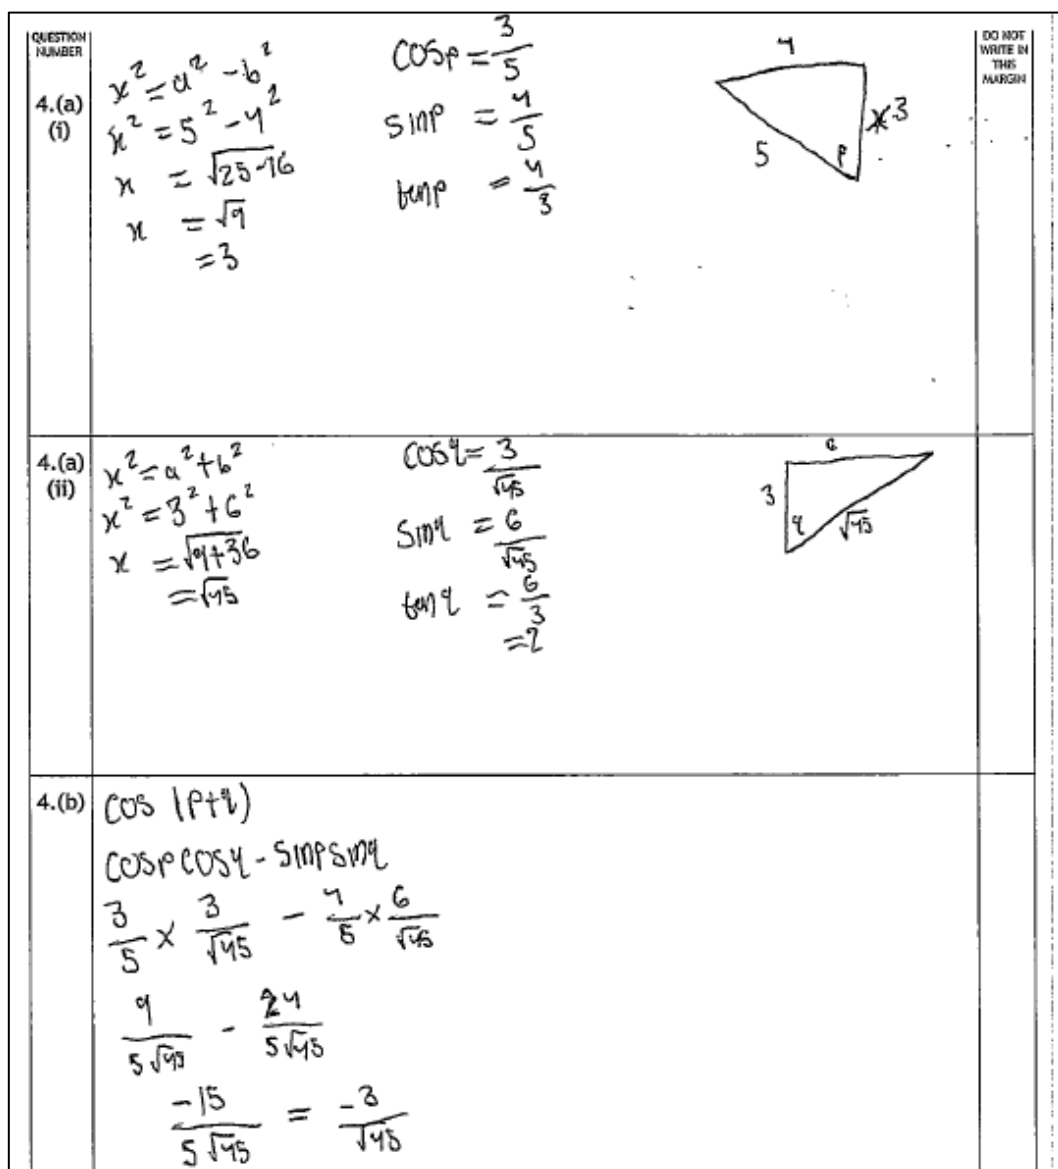 QUESTION NUMBER
DO NOT WRITE IN THIS MARGIN
4.(a) (i)
x² = a² - b²
x² = 5² - 4²
x = √25-16
x = √9
= 3
cosp = 3/5
sinp = 4/5
tanp = 4/3
4
x 3
5
P
4.(a) (ii)
x² = a² + b²
x² = 3² + 6²
x = √9+36
= √45
cosq = 3/√45
sinq = 6/√45
tanq = 6/3
= 2
6
3
q
√45
4.(b)
cos (p+q)
cosp cosq - sinp sinq
3/5 × 3/√45 - 4/5 × 6/√45
9/5√45 - 24/5√45
-15/5√45 = -3/√45